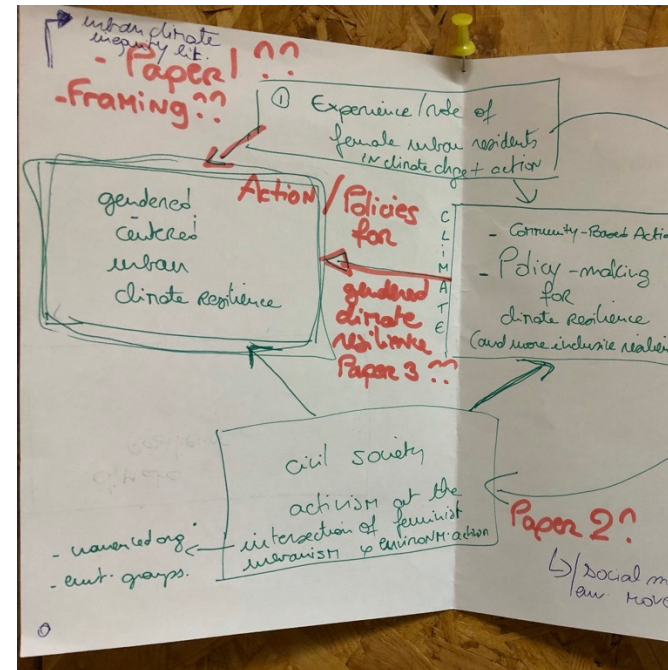 urban climate
inequity lit.
- Paper 1 ??
- FRAMING ??
① Experience/role of
female urban residents
in climate chge + action
gendered
centered
urban
climate Resilience
Action / Policies
for
gendered
climate
resilience
Paper 3 ??
CLIMATE
- Community-Based Actio
- Policy-making
for
climate resilience
(and more inclusive
civil society
activism at the
intersection of feminist
urbanism & environm. action
- women led org
- groups.
Paper 2?
social m
env. move